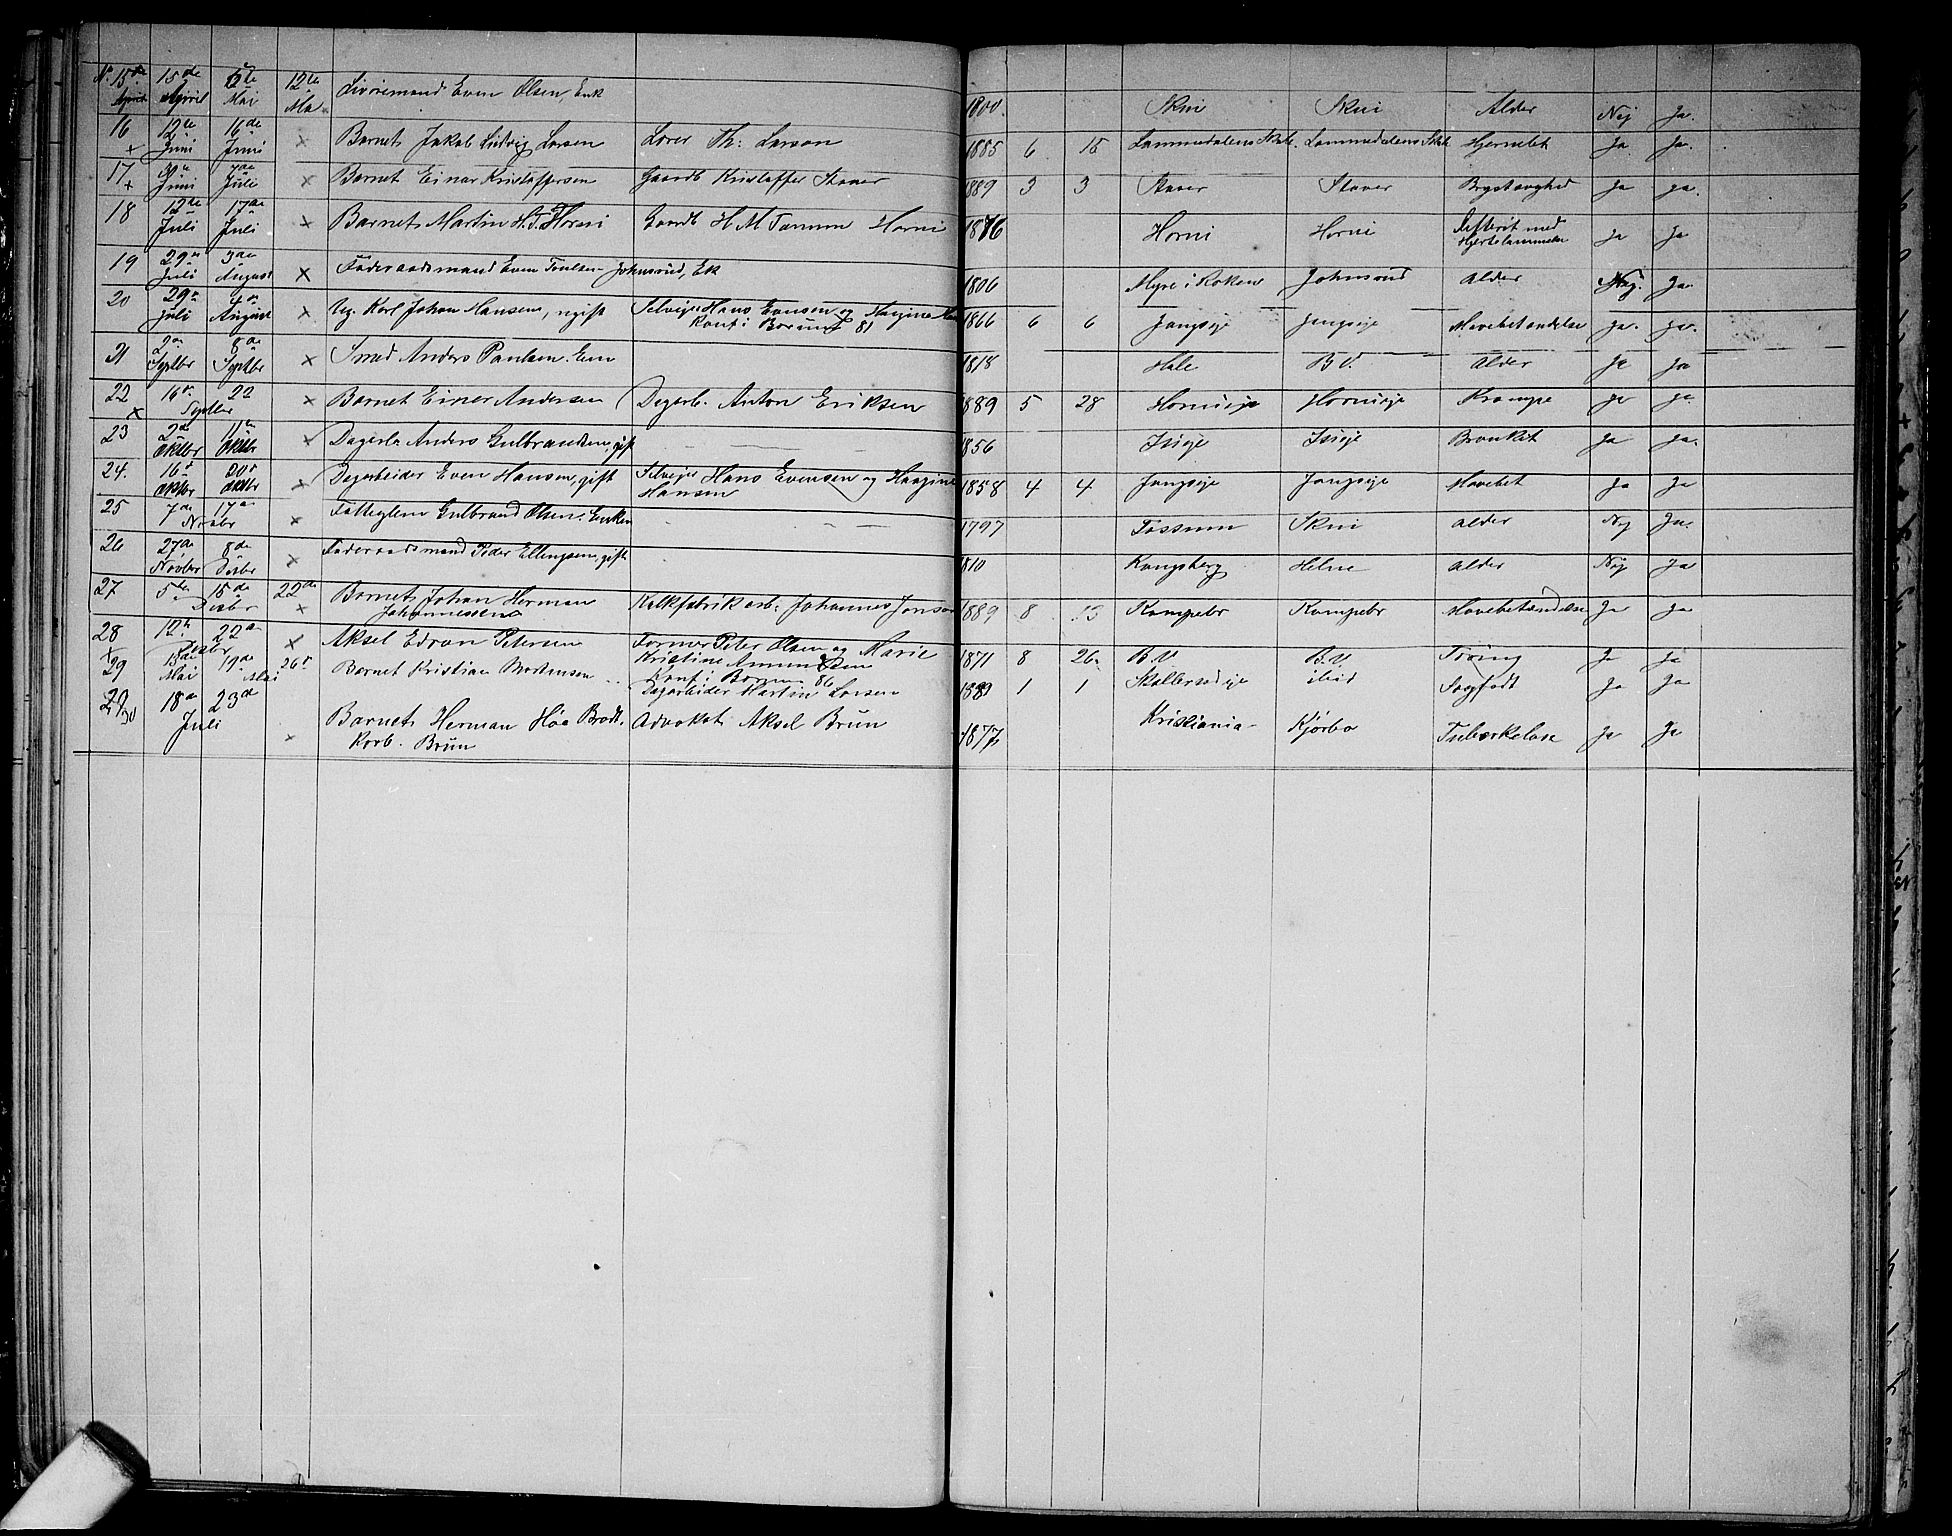 No 15 15de April 6te Mai 12te Mai Livøremand Even Olsen, Enk 1800. Skui Skui Alder Nej Ja.
16 12te Juni 16de Juni Barnet Jakob Ludvig Larsen Lærer Th: Larsen 1885 6 15 Lommedalens Skole. Lommedalens Skole Hjernebet Ja Ja.
17 Juni 7de Juli Barnet Einar Kristoffersen Gaardb Kristoffer Staver 1889 3 3 Staver Staver Brystsvaghed Ja Ja.
18 12te Juli 17de Juli Barnet Martin H. T. Horni Gaardb H M Tannum Horni 1876 Horni Horni Difterit med Hjertelammelse Ja Ja
19 29de Juli 3de August Føderaadsmand Even Johnsrud, Ek 1806 Myre i Røken Johnsrud Alder Nej. Ja
20 29de Juli 4de August Ug. Karl Johan Hansen, ugift Selvejer Hans Evensen og Haagine
Konf i Bærum 81 1866 6 6 Jongseje Jongseje Mavebetændelse Ja. Ja.
21 2de Septbr 8de Septbr Smed Anders Paulsen. Enm 1818 Hale B.V. Alder Ja Ja
22 16de 22 Septbr Barnet Einar Andersen Dagarb. Anton Eriksen 1889 5 28 Horneje Horneje Krampe Ja Ja
23 2de Oktbr 11te Oktbr Dagarb Anders Gulbrandsen, gift 1856 Iseje Iseje Bronket Ja Ja.
24. 16de Oktbr 20de Oktbr Dagarbeider Even Hansen, gift Selvejer Hans Evensen og Haagine
Hansen 1858 4 4 Jongseje Jongseje Mavebet Ja Ja
25 7de 17de Novbr Fattiglem Gulbrand Olsen. Enkem 1797 Fossum Skui Alder Nej Ja.
26 27de Novbr 8de Desbr Føderaadsmand Peder Ellingsen, gift 1810 Kongsberg Helne Alder Nej Ja
27 5de 15de Desbr 22de Barnet Johan Herman
Johannessen Kalkfabrikarb. Johannes Jonson 1889 8 13 Kampebr Kampebr Mavebetændelse Ja Ja
28 12te 22de Desbr Aksel Edvan Petersen Former Peter Olsen og Marie
Kristine Amundsen
Konf i Bærum 86 1871 8 26. B.V B.V Tæring Ja Ja
29 15de Mai 19de Mai 26de Barnet Kristian Mortensen Dagarbeider Martin Larsen 1889 1 1 ibid Ja Ja
29 30 18de 23de Juli Barnet Herman Høe Brodt-
korb. Brun Advokat Aksel Brun 1877 Kristiania Kjørbo Tuberkelose Ja Ja